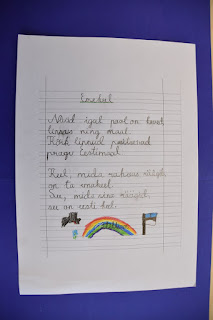 Emakeel
Nüüd igal pool on keset
linnas ning maal.
Kõik linnud
praegu Eestimaal.
Keel, mida rahvas räägib,
on ta emakeel.
See, mida sina räägid,
see on eesti keel.